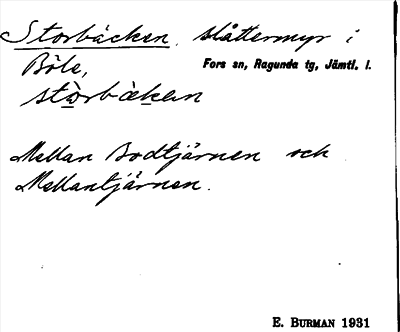 Storbäcken, slåttermyr i
Böle, Fors sn, Ragunda tg, Jämtl. l.
stòrbàeken
Mellan Bodtjärnen och
Mellantjärnen.
E. BURMAN 1931